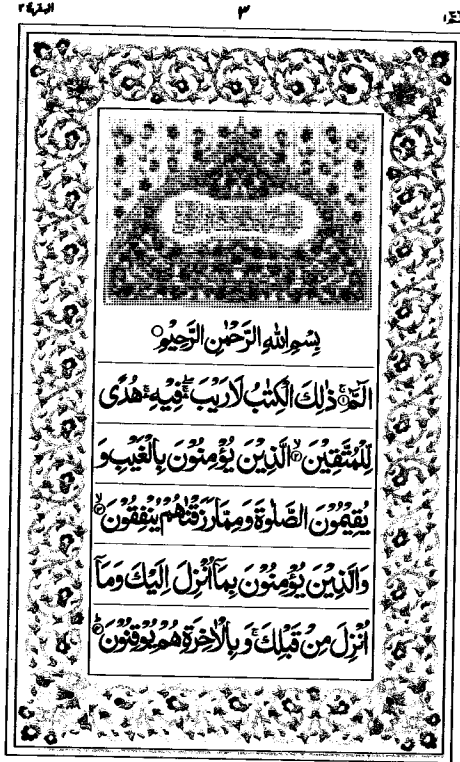 البقرة ٢
٣
الٓمّٓ ١
بِسْمِ اللّٰهِ الرَّحْمٰنِ الرَّحِيْمِ
الٓمّٓ ۚ﴿۱﴾ ذٰلِكَ الْكِتٰبُ لَا رَيْبَ ۛۖ فِيْهِ ۛۚ هُدًى
لِّلْمُتَّقِيْنَ ۙ﴿۲﴾ الَّذِيْنَ يُؤْمِنُوْنَ بِالْغَيْبِ وَ
يُقِيْمُوْنَ الصَّلٰوةَ وَمِمَّا رَزَقْنٰهُمْ يُنْفِقُوْنَ ۙ﴿۳﴾
وَالَّذِيْنَ يُؤْمِنُوْنَ بِمَاۤ اُنْزِلَ اِلَيْكَ وَمَاۤ
اُنْزِلَ مِنْ قَبْلِكَ ۚ وَ بِالْاٰخِرَةِ هُمْ يُوْقِنُوْنَ ؕ﴿۴﴾